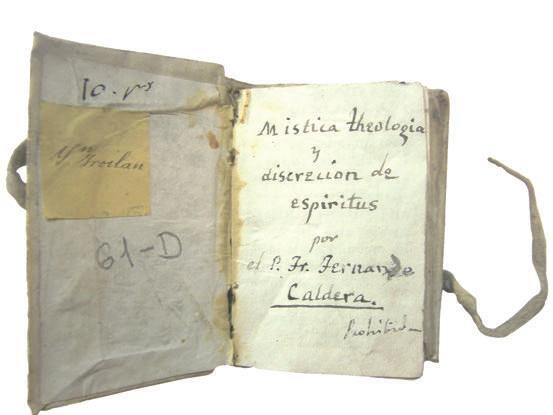 10. rs
Yn Froilan
61-D
Mistica theologia
y
discrecion de
espiritus
por
el P. Fr. Fernando
Caldera.
Prohibido